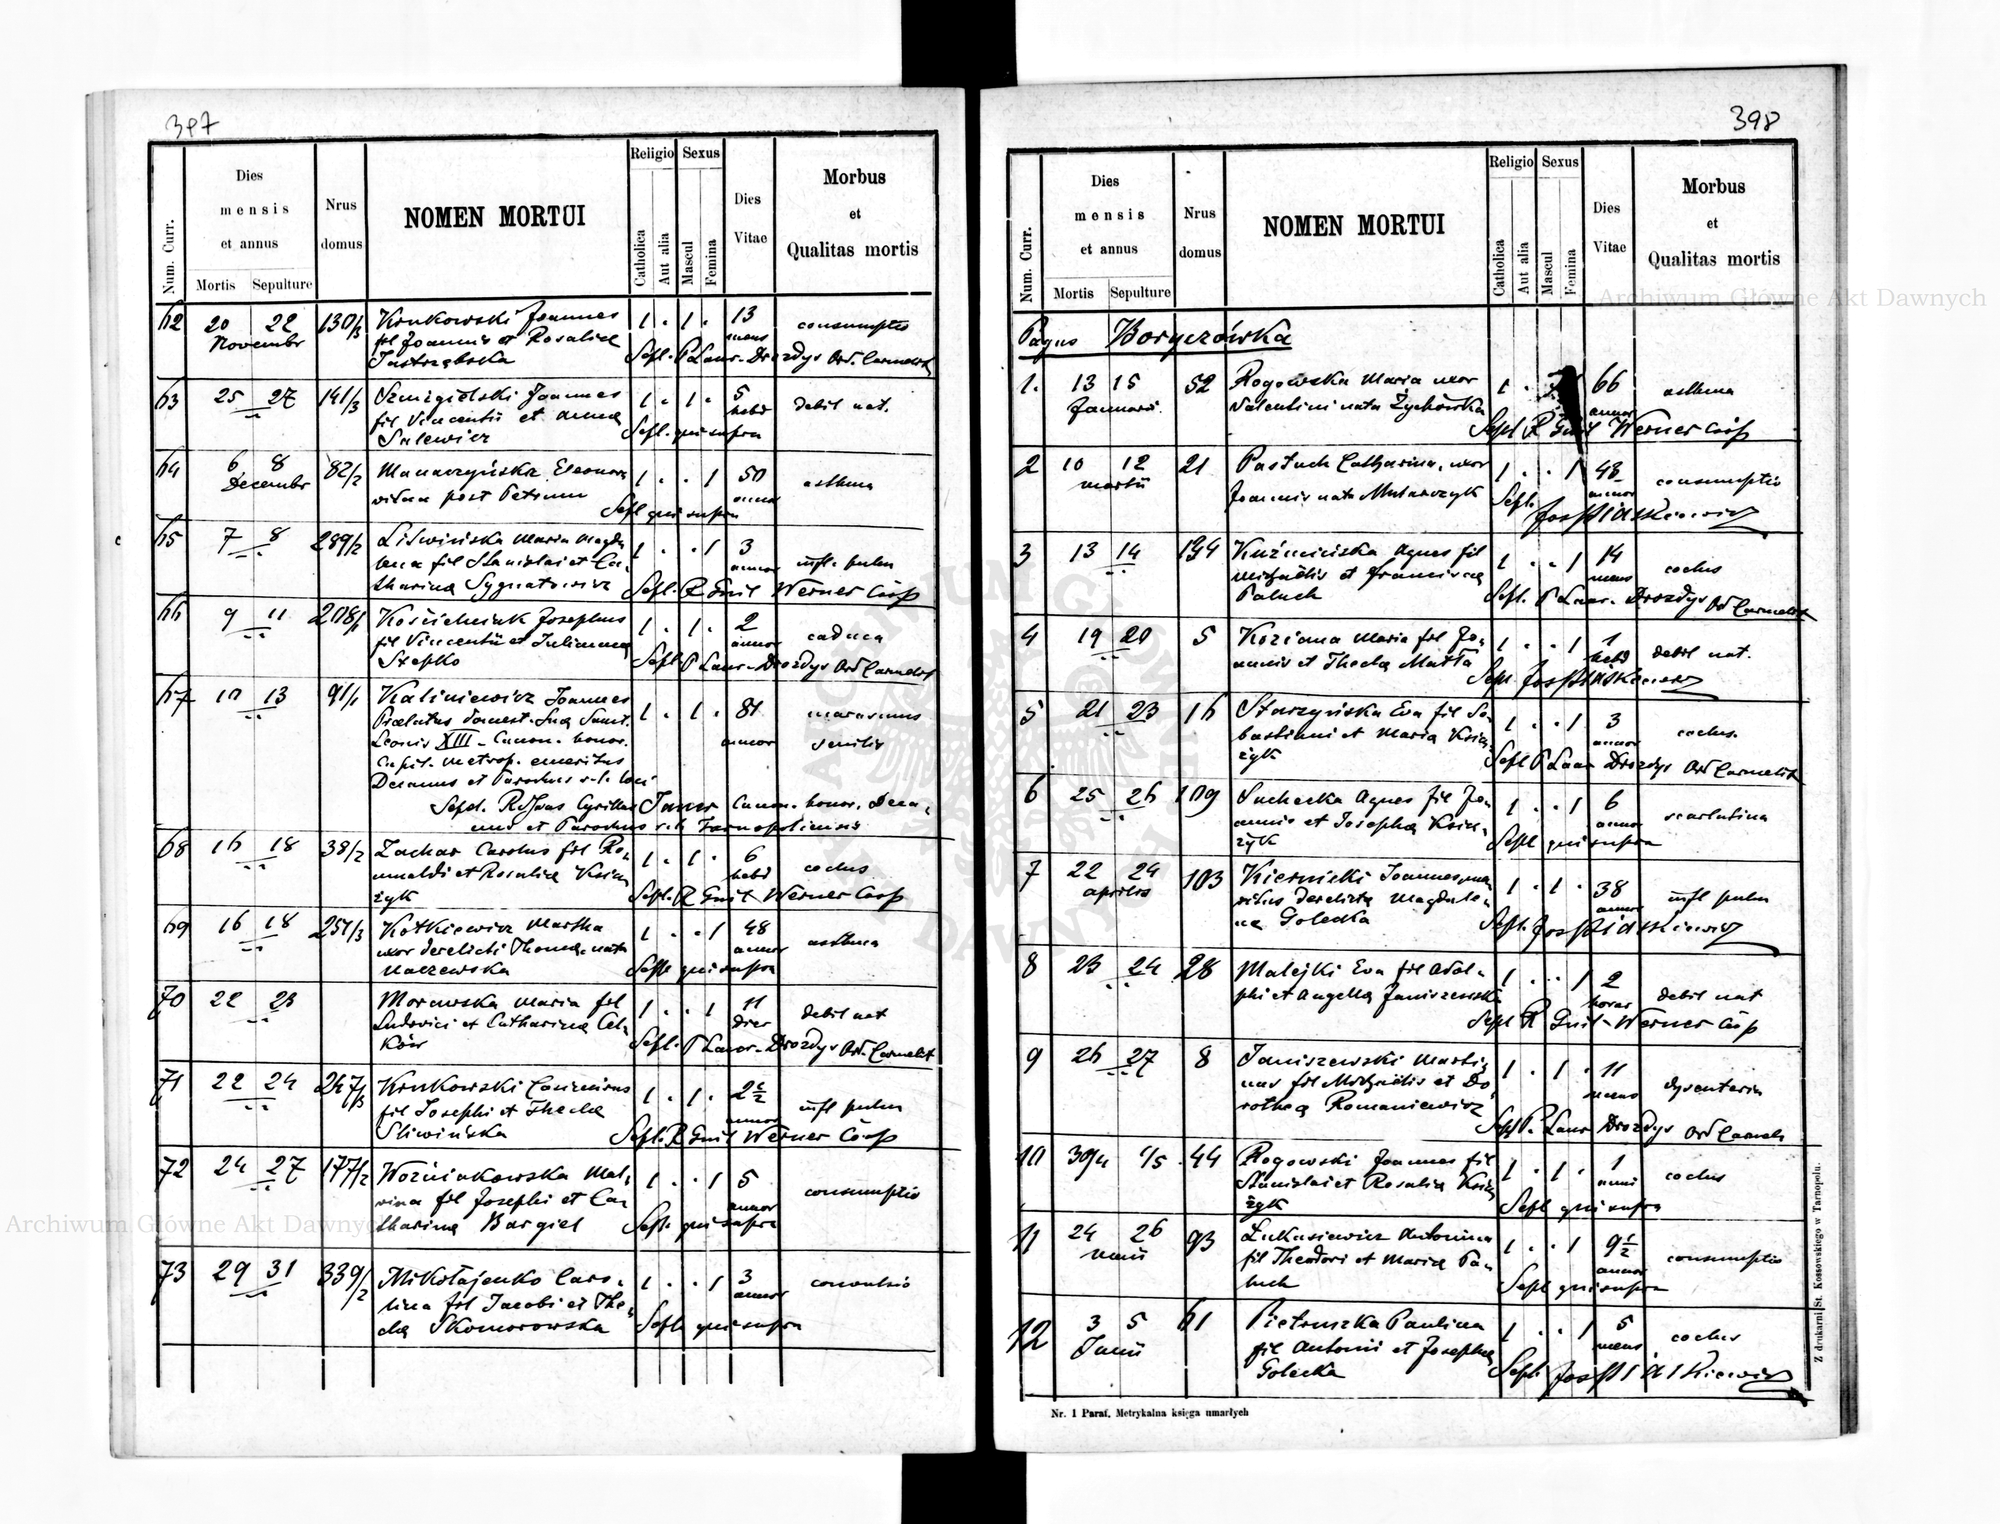 397
Num. Curr.
Dies
mensis
et annus
Mortis Sepulture
Nrus
domus
NOMEN MORTUI
Religio
Catholica
Aut alia
Sexus
Mascul
Femina
Dies
Vitae
Morbus
et
Qualitas mortis
62 20 22 130/3 Krukowski Joannes 1 . 1 . 13 consumptio
Novembr fil Joannis et Rosaliae mens
Jastrzębska Sepl. P Laur. Drozdys Ord. Carmelit
63 25 27 141/3 Szmigielski Joannes 1 . 1 . 5 debil nat.
fil Vincentii et Anna hebd
Salewicz Sepl. qui supra
64 6 8 82/2 Eleonora 1 . . 1 50 asthma
Decembr vidua post Petrum annor
Sepl qui supra
65 7 8 289/2 Liświńska Maria Magda 1 . . 1 3 infl. pulm
lena fil Stanislai et Ca- annor
tharina Sygnatowicz Sepl. R Guil Werner Coop
66 9 11 208/1 Josephus 1 . 1 . 2 caduca
fil Vincentii et Julianna annor
Stepko Sepl. P Laur. Drozdys Ord Carmelit
67 10 13 91/1 Kaliniewicz Joannes 1 . 1 . 81 marasmus
Praelatus domest. Suae Sanct. annor senilis
Leonis XIII - Canon. honor.
Capit. metrop. emeritus
Decanus et Parochus r. l. loci
Sepl. Cyrillus Canon. honor. Deca-
nus et Parochus r. l. Tarnopoliensis
68 16 18 38/2 Zachar Carolus fil Ro- 1 . 1 . 6 coctus
mualdi et Rosaliae Ksią- hebd
żyk Sepl. R Guil Werner Coop
69 16 18 251/3 Kotkiewicz Martha 1 . . 1 48 asthma
uxor derelicti Thomae nata annor
Naczewska Sepl qui supra
70 22 23 Morawska Maria fil 1 . . 1 11 debil nat
Ludovici et Catharina dies
Sepl. P Laur. Drozdys Ord. Carmelit
71 22 24 247/3 Krukowski Casimirus 1 . 1 . 2½ infl pulm
fil Josephi et Thecla annor
Śliwińska Sepl. R Guil Werner Coop
72 24 27 177/2 Woźniakowska Mal- 1 . . 1 5 consumptio
wina fil Josephi et Ca- annor
tharina Bargiel Sepl. qui supra
73 29 31 339/2 Mikołajenko Caro- 1 . . 1 3 convulsio
lina fil Jacobi et The- annor
cla Skomorowska Sepl qui supra
398
Num. Curr.
Dies
mensis
et annus
Mortis Sepulture
Nrus
domus
NOMEN MORTUI
Religio
Catholica
Aut alia
Sexus
Mascul
Femina
Dies
Vitae
Morbus
et
Qualitas mortis
Pagus Boryczówka
1. 13 15 52 Rogowska Maria uxor 1 . 66 asthma
Januarii Valentini nata Żychowska annor
Sepl R Guil Werner Coop
2 10 12 21 Pastuch Catharina, uxor 1 . . 1 48 consumptio
martii Joannis nata Mularczyk annor
Sepl.
3 13 14 134 Kuźmińska Agnes fil 1 . . 1 14 coctus
Michaelis et Francisca mens
Paluch Sepl. P Laur. Drozdys Ord Carmelit
4 19 20 5 Koziana Maria fil Jo- 1 . . 1 1 debil nat.
annis et Thecla Matla hebd
Sepl.
5 21 23 16 Starzyńska Eva fil Se- 1 . . 1 3 coctus.
bastiani et Maria Ksią- annor
żyk Sepl P Laur Drozdys Ord Carmelit
6 25 26 109 Suchecka Agnes fil Jo- 1 . . 1 6 scarlatina
annis et Josepha Ksią- annor
żyk Sepl qui supra
7 22 24 103 Kiernicki Joannes, ma- 1 . 1 . 38 infl pulm
aprilis ritus derelicta Magdale- annor
na Golecka Sepl.
8 23 24 28 Malejki Eva fil Adol- 1 . . 1 2 debil nat
phi et Angella Janiszewska horar
Sepl R Guil Werner Coop
9 26 27 8 Janiszewski Marti- 1 . 1 . 11 dysenteria
nus fil Michaelis et Do- mens
rothea Romaniewicz Sepl P. Laur Drozdys Ord Carmeli
10 30/4 1/5 44 Rogowski Joannes fil 1 . 1 . 1 coctus
Stanislai et Rosalia Ksią- anni
żyk Sepl qui supra
11 24 26 93 Łukasiewicz Antonina 1 . . 1 9½ consumptio
maii fil Theodori et Maria Pa- annor
luch Sepl qui supra
12 3 5 61 Pietruszka Paulina 1 . . 1 5 coctus
Junii fil Antonii et Josepha mens
Golecka Sepl.
Nr. 1 Paraf. Metrykalna księga umarłych
Z drukarni St. Kossowskiego w Tarnopolu.
Archiwum Główne Akt Dawnych
Archiwum Główne Akt Dawnych
ARCHIWUM GŁÓWNE AKT DAWNYCH